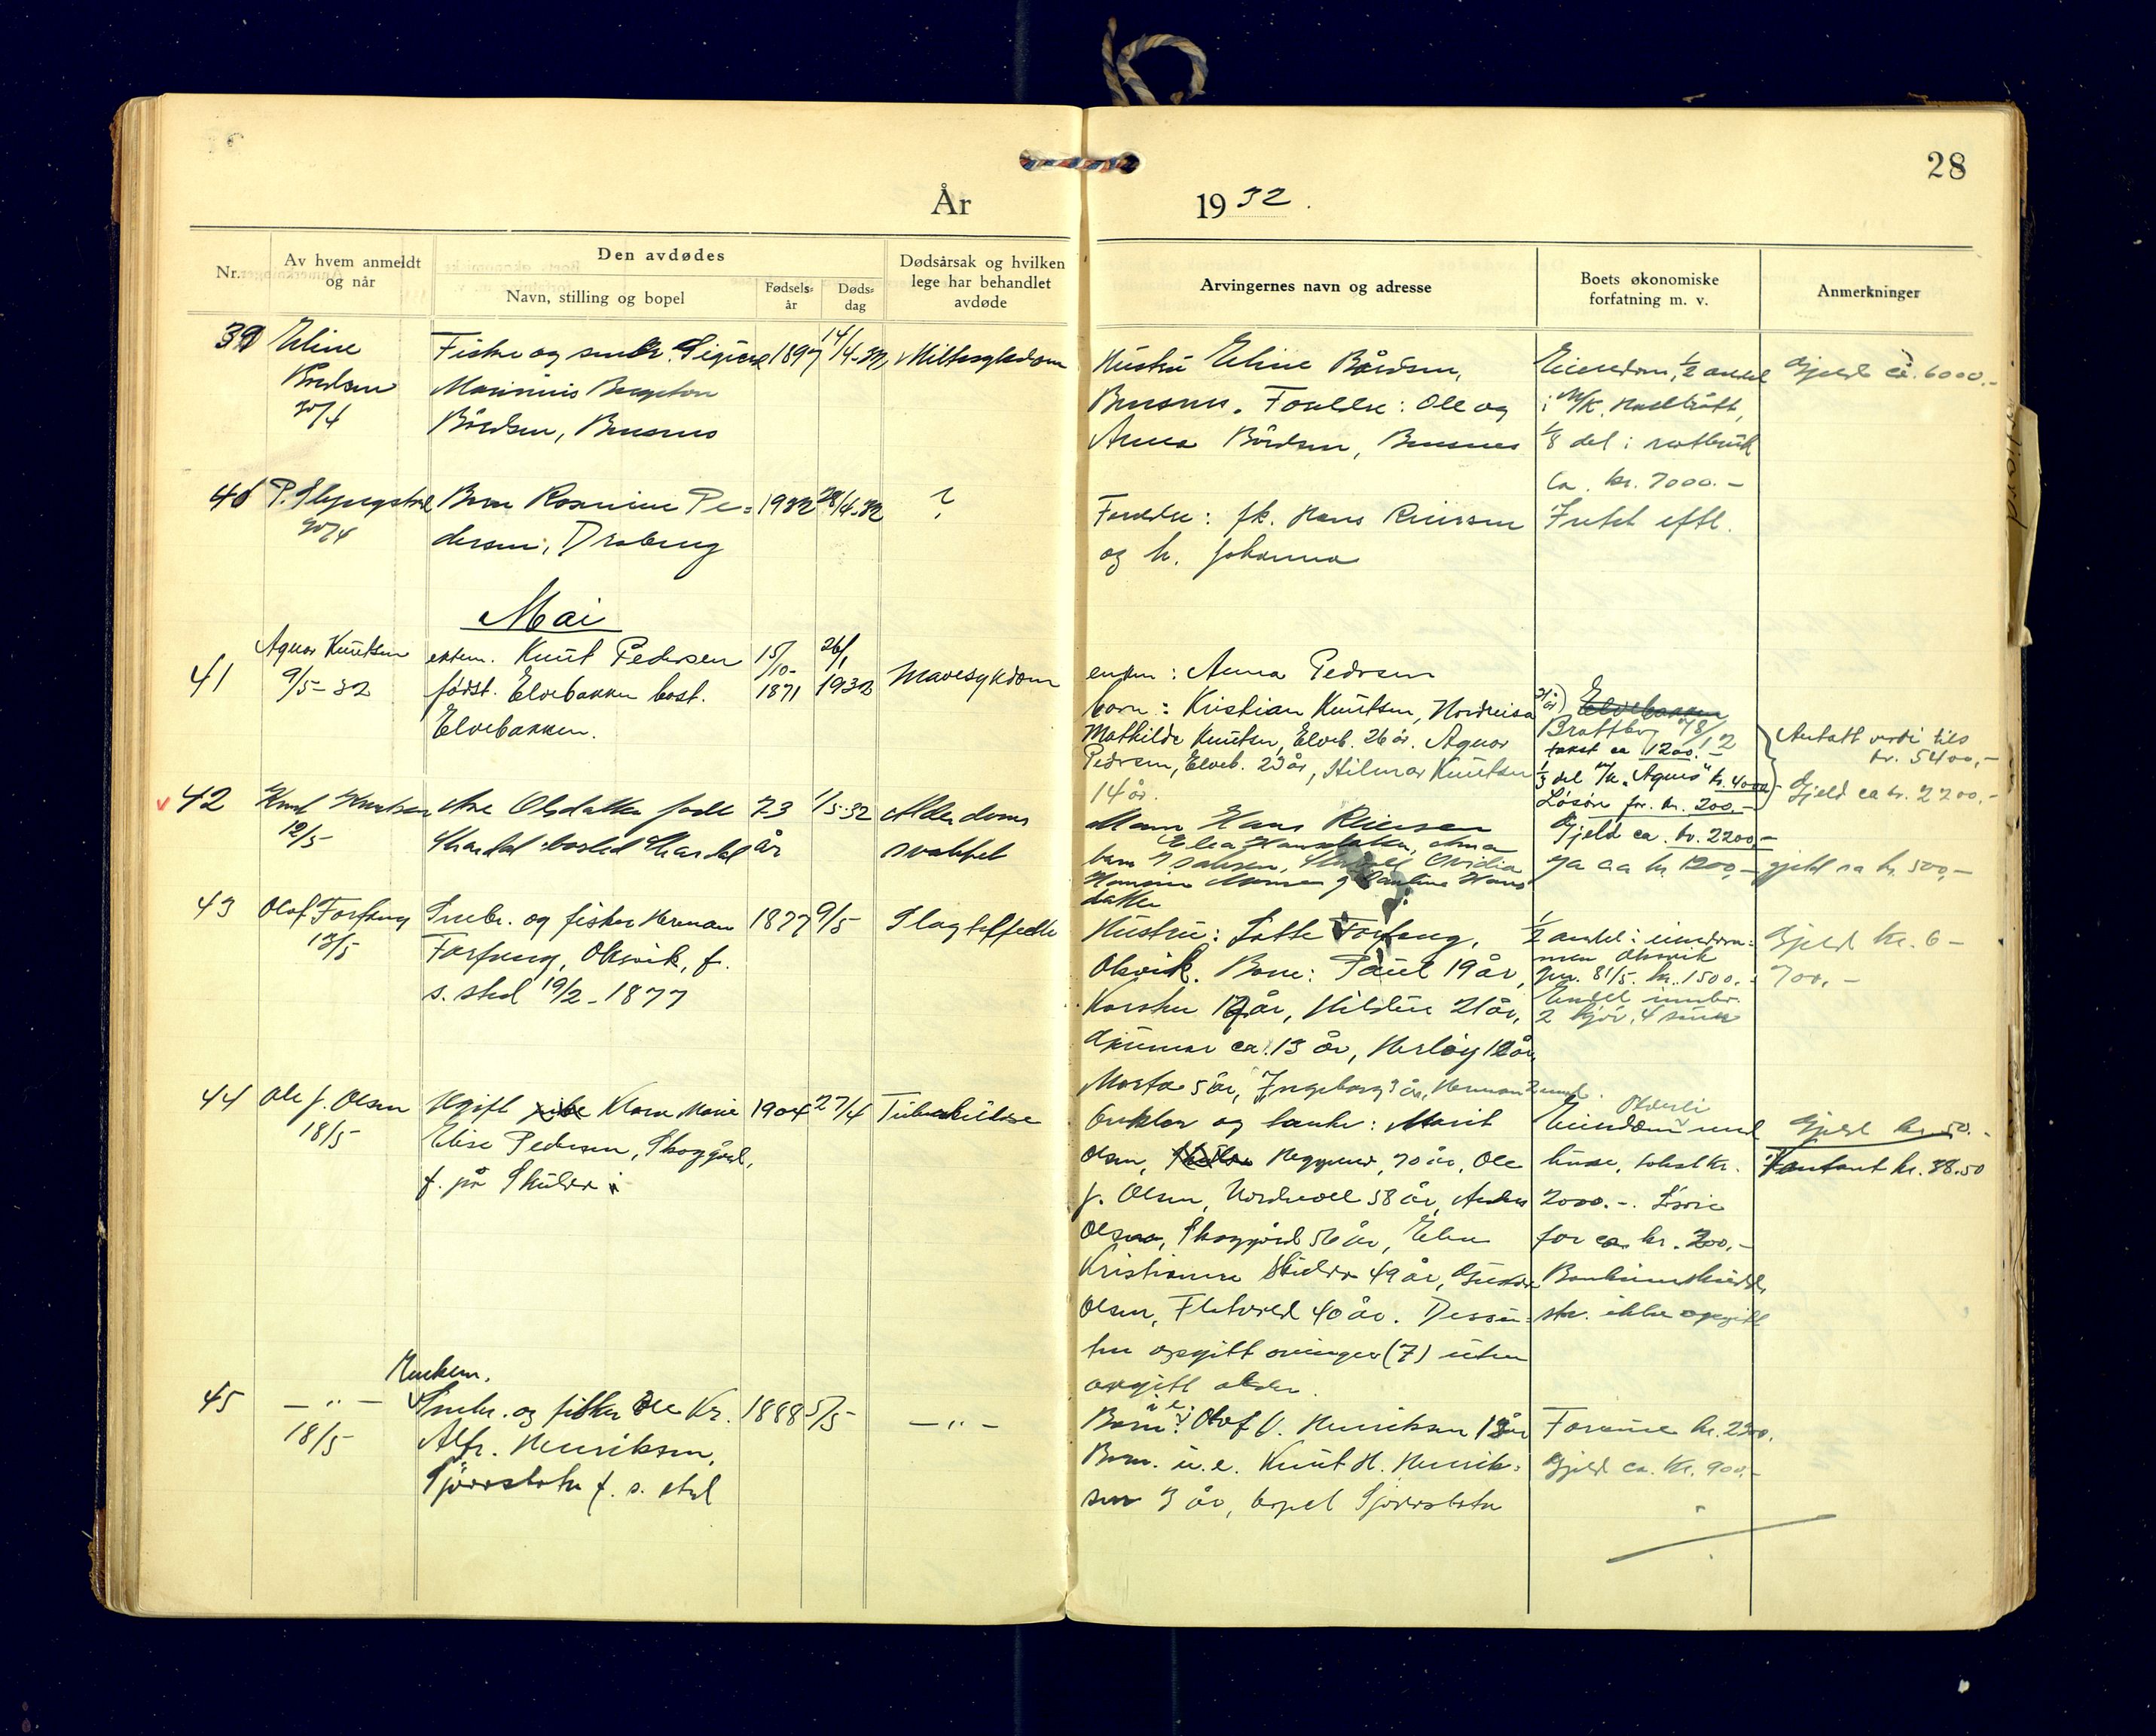 28
År 1932.
Nr.
Av hvem anmeldt og når
Den avdødes
Navn, stilling og bopel
Fødsels-år
Døds-dag
Dødsårsak og hvilken lege har behandlet avdøde
Arvingernes navn og adresse
Boets økonomiske forfatning m. v.
Anmerkninger
39 Eline
Bårdsen
Fisker og småbr. Sigurd 1897 14/4-32
Bårdsen, Busnes
Hustru Eline Bårdsen,
Busnes. Foreldre: Ole og
Anna Bårdsen, Busnes
Eiendom, 1/2 andel
i M/K.
1/8 del i
ca. kr. 7000.-
Gjeld ca. 6000.-
40
Barn Rosmine Pe-
dersen, Draberg
1932 28/4-32
?
Foreldre: fk. Hans Reiersen
og h. Johanna
Intet eftl.
Mai
41 Agnar Knutsen
9/5-32
ektem. Knut Pedersen
født. Elvebakken bost.
Elvebakken.
15/10-1871
26/1 1932
Mavesykdom
enken: Anna Pedersen
barn: Kristian Knutsen, Nordreisa
Mathilde Knutsen, Elveb. 26 år. Agnar
Pedersen, Elveb. 23 år, Hilmar Knutsen
14 år.
Elvebakken
Brattberg 78/12
takst ca 1200.-
1/3 del m/k "Agnes" kr. 4000
Løsøre for kr. 200.-
Gjeld ca. kr. 2200.-
Antatt verdi tils
kr. 5400,-
Gjeld ca kr. 2200.-
42 Knut Knutsen
12/5
Ane Olsdatter født
Skardal bosted Skardal
73 år
1/5-32
Alderdoms
svakhet
Mann Hans Reiersen
Elea Hansdatter, Anna
barn Isaksen, Ovidia
Hansine Monsen og Pauline Hans
datter
ja ca kr 1200,-
gjeld ca kr. 500,-
43 Olaf Forfang
13/5
Småbr. og fisker Herman
Forfang, Olsvik, f.
s. sted 19/2-1877
1877 9/5
Slagtilfelle
Hustru: Lotte Forfang,
Olsvik. Barn: Paul 19 år,
Karsten 17 år, Hildur 21 år,
Gunnar ca. 13 år, Herløy 12 år
Marta 5 år, Ingeborg 3 år, Herman 2 mnd.
1/2 andel i eiendom-
men Olsvik
gnr. 81/5. kr. 1500.-
Endel innbo.
2 kjør, 4 sauer
Gjeld kr. 6-
700.-
44 Ole J. Olsen
18/5
Ugift Klara Marie
Elise Pedersen, Skoggård,
f. på Skulsr
1904 27/4
Tuberkulose
Onkler og tanter: Marit
Olsen, 70 år, Ole
J. Olsen, Nordvoll 58 år, Anders
Olsen, Skoggård 56 år, Elen
Kristianna 49 år,
Olsen, Flatvoll 40 år. Dessu-
ten opgitt arvinger (7) uten
opgitt alder.
Olderli
Eiendom med
huse, takst kr.
2000.-. Løsøre
for ca kr. 200.-
ikke opgitt
Gjeld kr. 50.-
Kontant kr. 38.50
45 — " —
18/5
Enkem.
Småbr. og fisker Ole Kr.
Alfr. Henriksen,
f. s. sted
1888 5/5
— " —
Barn: Olaf O. Henriksen
Barn. u. e. Knut H. Henrik-
sen 3 år, bopel
Formue kr. 2300.
Gjeld ca. kr. 900.-